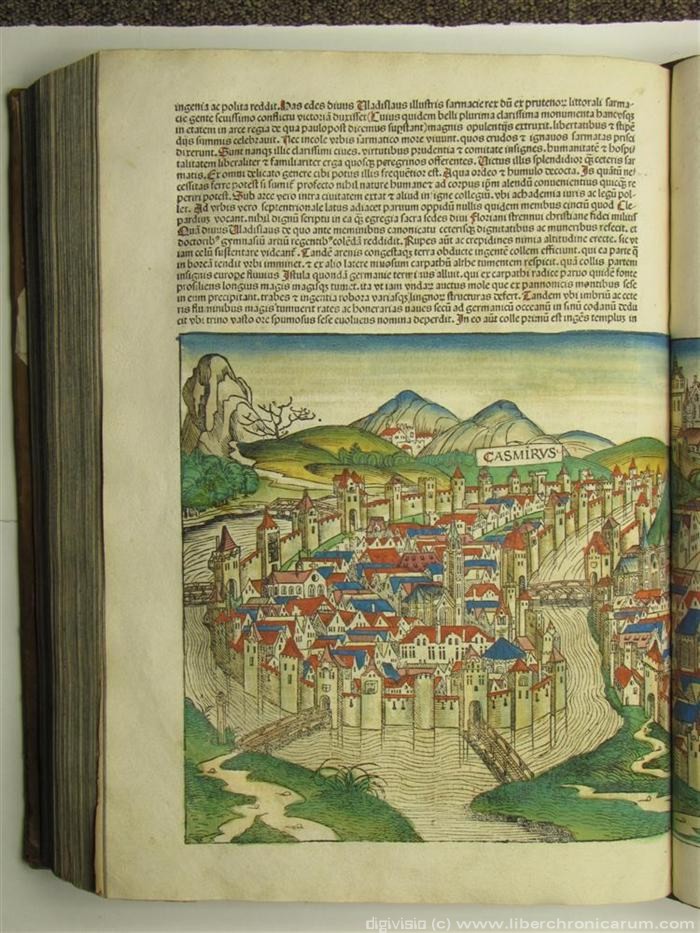 ingenia ac polita reddit. Has edes divus Uladislaus illustris sarmacie rex dū ex prutenoꝝ littorali sarma-
cie gente sevissimo conflictu victoriā duxisset (Cuius quidem belli plurima clarissima monumenta
in etatem in arce regia de qua paulopost dicemus magnis opulentijs extruxit. libertatibus ⁊
summis celebravit. Nec incole vrbis sarmatico more vivunt. quos crudos ⁊ ignavos sarmatas prisci
dixerunt. Sunt illic clarissimi cives. virtutibus prudentia ⁊ comitate insignes. humanitatē ⁊ hospi
talitatem liberaliter ⁊ familiariter erga quosqꝫ peregrinos offerentes. Victus illis splendidior qꝫ ceteris sar
matis. Ex omni delicato genere cibi potus illis freqūetior est. Aqua ordeo ⁊ humulo decocta. Is
cessitas ferre potest si sumit profecto nihil nature humane ⁊ ad corpus alendū convenientius
periri potest. Sub arce vero intra civitatem extat ⁊ aliud insigne collegiū. vbi achademia iuris ac legū pol
let. Ad vrbis vero septentrionale latus adiacet partum oppidū nullis quidem menibus cinctū quod Cle
pardium vocant. nihil dignū scriptu in ea qꝫ egregia sacra sedes divi Floriani strennui christiane fidei militis
Quā divus Uladislaus de quo ante meminibus canonicatu ceterisqꝫ dignitatibus ac muneribus refecit. et
doctoribꝰ gymnasiū artiū regentibꝰ reddidit. Rupes aūt ac crepidines nimia altitudine erecte. sic vt
iam celū sustentare videant. Tandē arenis congestaqꝫ terra obducte ingentē collem efficiunt. qui ea parte
in boreā tendit vrbi imminet. ⁊ ex alio latere nivosum carpathū altrīx tumentem respicit. quā collis partem
insignis europe fluvius Istula quondā germanie terminus alluit. qui ex carpathi radice parvo quidē fonte
prosiliens longius magis magisqꝫ tumet. ita vt iam vndaꝝ auctus mole que ex pannonicis montibus sese
in eum precipitant. trabes ⁊ ingentia robora variasqꝫ lignoꝝ structuras defert. Tandem vbi imbriū ac cete
ris fluminibus magis tumuerit rates ac honerarias naves secū ad germanicū occeanū in sinū codanū dedu
cit vbi trino vasto ore spumosus sese evolvens nomina deperdit. In eo aūt colle primū est ingēs templuꝫ in
CASMIRVS
digivisio (c) www.liberchronicarum.com